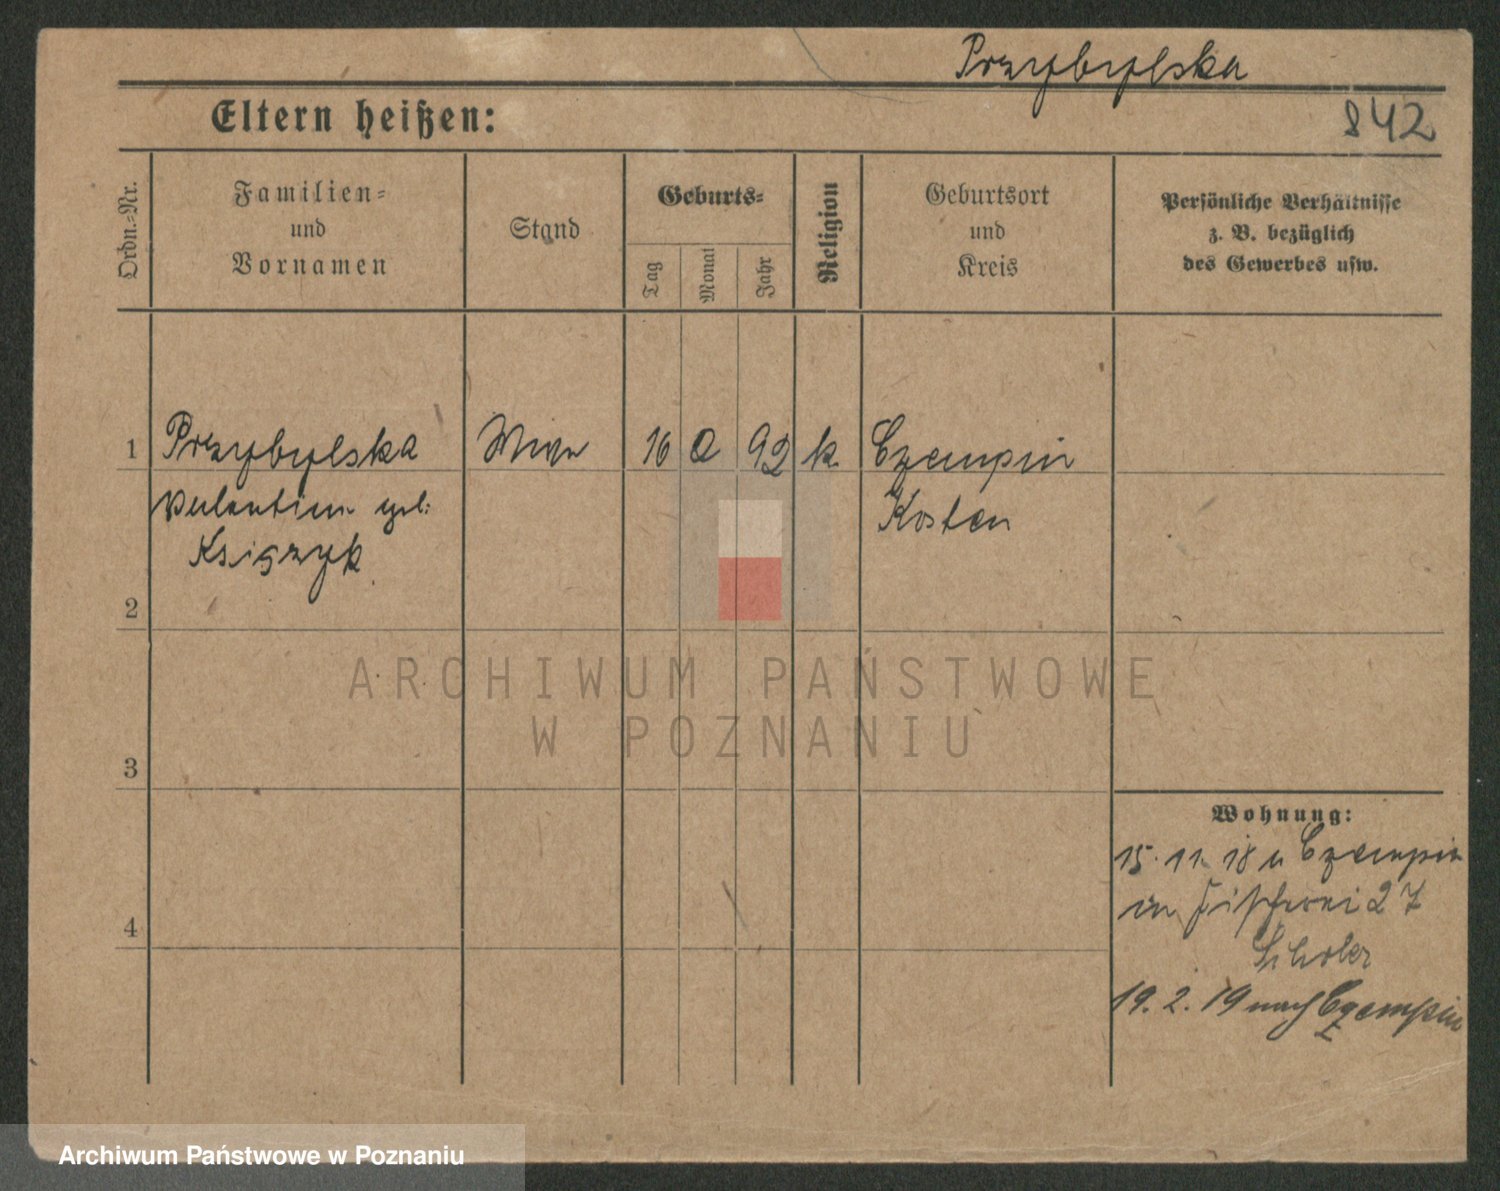 Przybylska
Eltern heißen:
842
Ordn.=Nr.
Familien=
und
Vornamen
Stand
Geburts=
Tag
Monat
Jahr
Religion
Geburtsort
und
Kreis
Persönliche Verhältnisse
z. B. bezüglich
des Gewerbes usw.
1 Przybylska 16 92 k. Czempin
Valentine geb: Kosten
Książyk
2
3
4
Wohnung:
15. 11. 18 u Czempin
in Fischerei 27
19. 2. 19 nach Czempin
ARCHIWUM PAŃSTWOWE
W POZNANIU
Archiwum Państwowe w Poznaniu